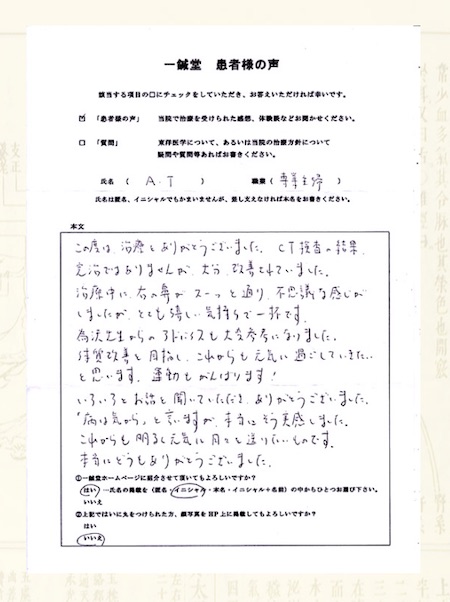 一鍼堂 患者様の声
該当する項目の□にチェックをしていただき、お答えいただければ幸いです。
☑ 「患者様の声」 当院で治療を受けられた感想、体験談などお聞かせください。
□ 「質問」 東洋医学について、あるいは当院の治療方針について
疑問や質問等あればお書きください。
氏名 ( A.T ) 職業 ( 専業主婦 )
氏名は匿名、イニシャルでもかまいませんが、差し支えなければ本名をお書きください。
本文
この度は、治療をありがとうございました。CT検査の結果、
完治ではありませんが、大分、改善されていました。
治療中に、右の鼻がスーッと通り、不思議な感じが
しましたが、とても嬉しい気持ちで一杯です。
先生からのアドバイスも大変参考になりました。
体質改善を目指し、これからも元気に過ごしていきたい
と思います。運動もがんばります!
いろいろとお話を聞いていただき、ありがとうございました。
「病は気から」と言いますが、本当にそう実感しました。
これからも明るく元気に日々を送りたいものです。
本当にどうもありがとうございました。
①一鍼堂ホームページに紹介させて頂いてもよろしいですか?
はい —氏名の掲載を (匿名・イニシャル・本名・イニシャル+名前) の中からひとつお選び下さい。
いいえ
②上記ではいに丸をつけられた方、顔写真を HP 上に掲載してもよろしいですか?
はい
いいえ